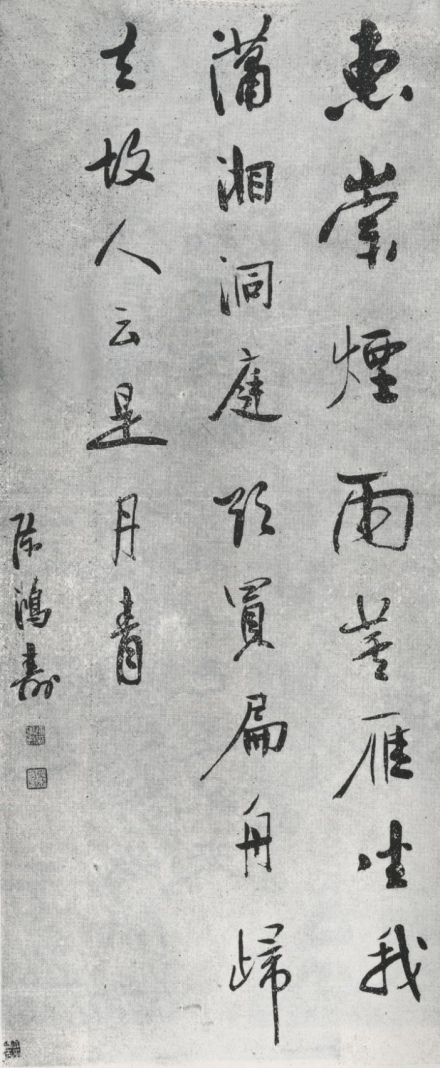 惠崇煙雨蘆雁坐我
瀟湘洞庭欲買扁舟歸
去故人云是丹青
陳鴻壽